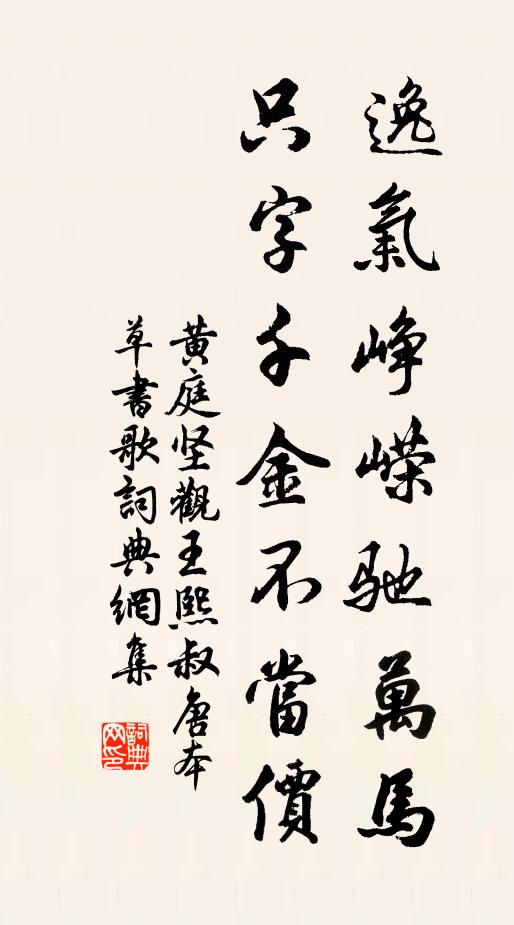 逸氣峥嶸馳萬馬
只字千金不當價
黄庭坚觀王熙叔唐本
草書歌詞典網集
詞典网印